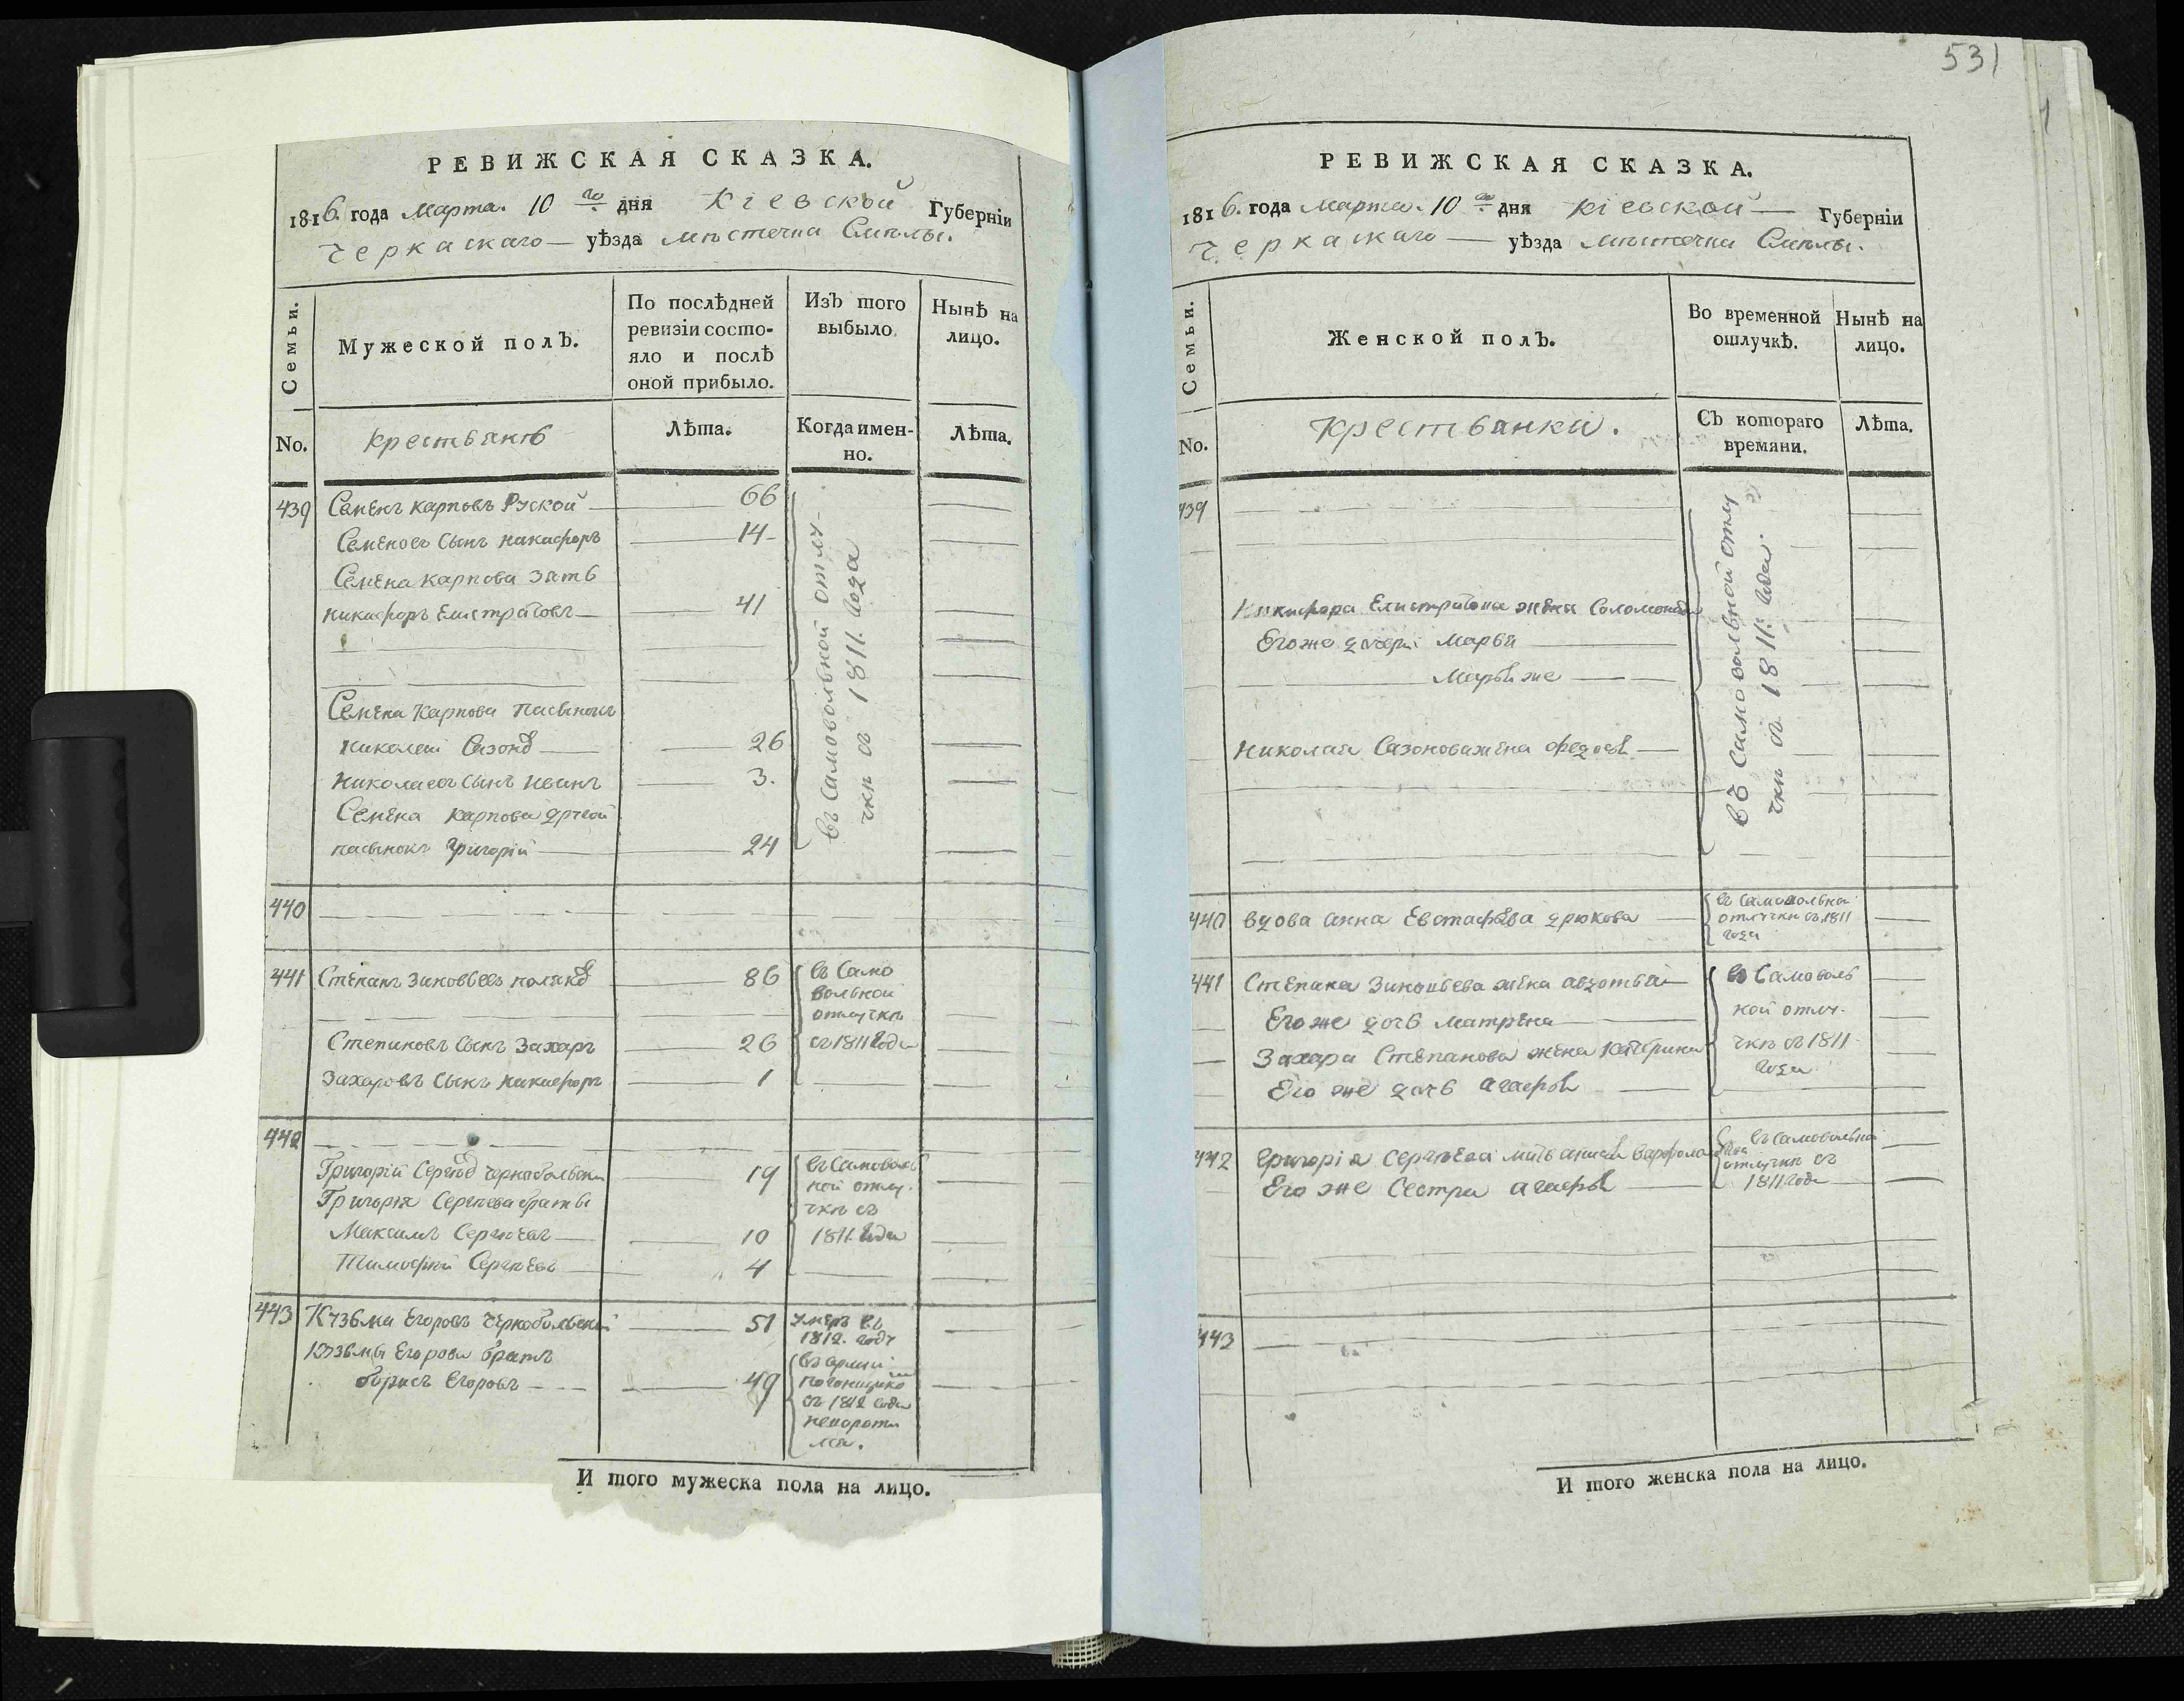 531
РЕВИЖСКАЯ СКАЗКА.
1816. года Марта. 10 го дня Кіевской Губерніи
Черкаскаго уѣзда мѣстечка Смѣлы.
Семьи.
Мужеской полЪ.
По послѣдней ревизіи состо-
яло и послѣ
оной прибыло.
ИзЪ того
выбыло.
НынѢ на
лицо.
No.
крестьянъ
ЛѢта.
Когда имен-
но.
ЛѢта.
439 Семенъ карповъ Руской 66
Семеновъ сынъ никифоръ 14
Семена карпова зять
никифоръ Елистратовъ 41
въ самовольной отлу-
чкѣ съ 1811. года
Семена Карпова пасынокъ
николай Сазоновъ 26
николаевъ сынъ иванъ 3.
Семена карпова другой
пасынокъ григорій 24
440
441 Степанъ зиновьевъ поляковъ 86
въ само
вольной
отлучкѣ
съ 1811 года
Степановъ сынъ захаръ 26
захаровъ сынъ никифоръ 1
442
Григорій Сергѣевъ чернобольской 19
въ самоволь
ной отлу-
чкѣ съ
1811. года
Григорія Сергѣева братья
Максимъ Сергѣевъ 10
Тимофей Сергѣевъ 4
443 Кузьма Егоровъ чернобольской 51
умеръ въ
1812. году
Кузьмы Егорова братъ
борисъ Егоровъ 49
въ армии
съ 1812 года
И того мужеска пола на лицо.
РЕВИЖСКАЯ СКАЗКА.
1816. года марта. 10 го дня кіевской Губерніи
Черкаскаго уѣзда мѣстечка Смѣлы.
Семьи.
Женской полЪ.
Во временной
отлучкѢ.
НынѢ на
лицо.
No.
крестьянки.
СЪ котораго
времяни.
ЛѢта.
439
Никифора Елистратова жена Соломонея
Его же дочери марья
марья же
николая Сазонова жена федосья
въ самовольной отлу
чкѣ съ 1811: года.
440 вдова анна Евстафьева дрюкова
въ самовольной
отлучкѣ съ 1811
года
441 Степана зиновьева жена авдотья
Его же дочь матрена
захара Степанова жена катерина
Его же дочь агафья
въ самоволь
ной отлу-
чкѣ съ 1811
года
442 григорія сергѣева мать анисья варфоломеева
Его же сестра агафья
въ самовольной
отлучкѣ съ
1811 года
443
И того женска пола на лицо.